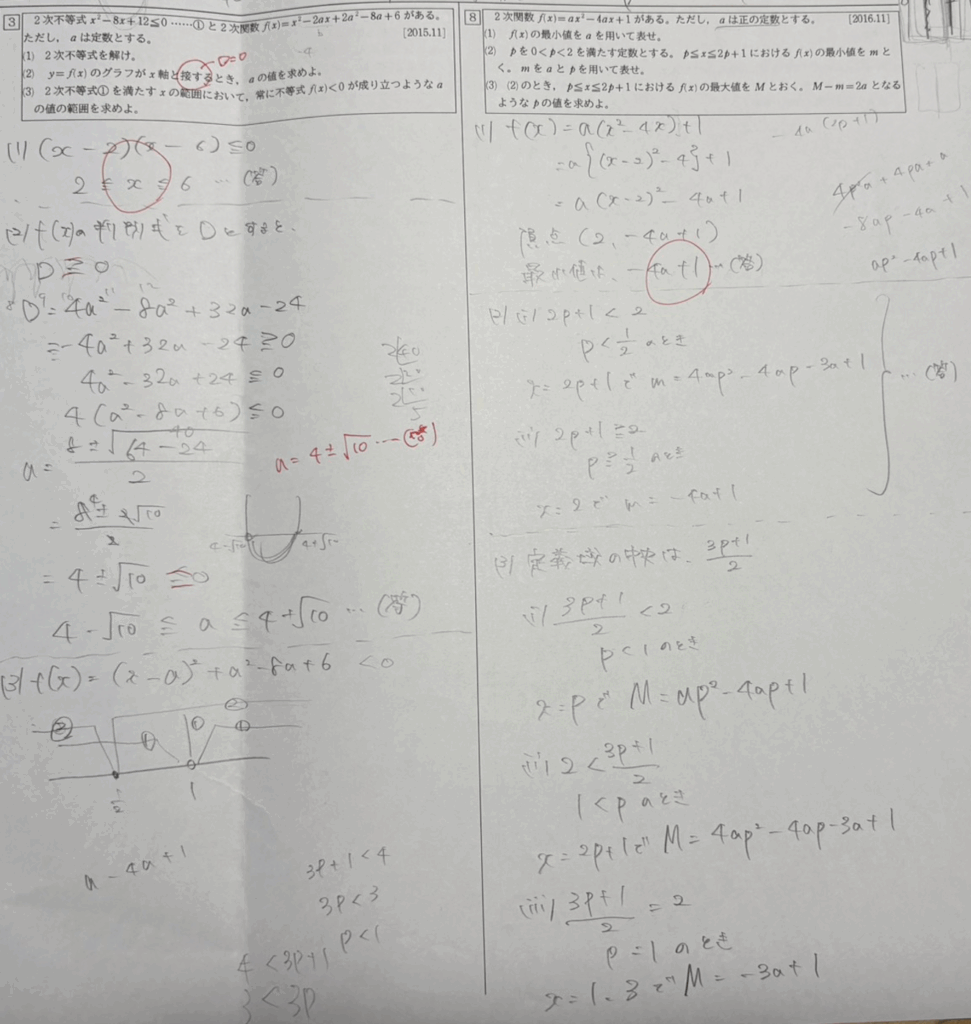 3 2次不等式 x²-8x+12≦0 ……① と2次関数 f(x)=x²-2ax+2a²-8a+6 がある。
ただし，aは定数とする。 [2015.11]
(1) 2次不等式①を解け。
(2) y=f(x)のグラフがx軸と接するとき，aの値を求めよ。
D=0
(3) 2次不等式①を満たすxの範囲において，常に不等式 f(x)<0 が成り立つようなa
の値の範囲を求めよ。
(1) (x-2)(x-6)≦0
2≦x≦6 …(答)
(2) f(x)の判別式をDとすると、
D≧0
D=4a²-8a²+32a-24
=-4a²+32a-24≧0
4a²-32a+24≦0
4(a²-8a+6)≦0
a=(8±√(64-24))/2
40
=(8±2√10)/2
=4±√10≦0
4-√10≦a≦4+√10 …(答)
a=4±√10 …(答)
2)40
2)20
2)10
5
4-√10
4+√10
(3) f(x)=(x-a)²+a²-8a+6 <0
② ① ① ② ①
1/2 1
a-4a+1
3p+1<4
3p<3
p<1
4<3p+1
3<3p
8 2次関数 f(x)=ax²-4ax+1 がある。ただし，aは正の定数とする。 [2016.11]
(1) f(x)の最小値をaを用いて表せ。
(2) pを0<p<2を満たす定数とする。p≦x≦2p+1における f(x)の最小値をmと
く。mをaとpを用いて表せ。
(3) (2)のとき，p≦x≦2p+1における f(x)の最大値をMとおく。M-m=2aとなる
ようなpの値を求めよ。
(1) f(x)=a(x²-4x)+1
=a{(x-2)²-4}+1
=a(x-2)²-4a+1
頂点 (2,-4a+1)
最小値は、-4a+1 …(答)
-4a(2p+1)
4p²a+4pa+a
-8ap-4a+1
ap²-4ap+1
(2) (i) 2p+1<2
p<1/2 のとき
x=2p+1で m=4ap²-4ap-3a+1
(ii) 2p+1≧2
p≧1/2 のとき
x=2で m=-4a+1
…(答)
(3) 定義域の中央は、(3p+1)/2
(i) (3p+1)/2<2
p<1のとき
x=pで M=ap²-4ap+1
(ii) 2<(3p+1)/2
1<pのとき
x=2p+1で M=4ap²-4ap-3a+1
(iii) (3p+1)/2=2
p=1のとき
x=1、3で M=-3a+1